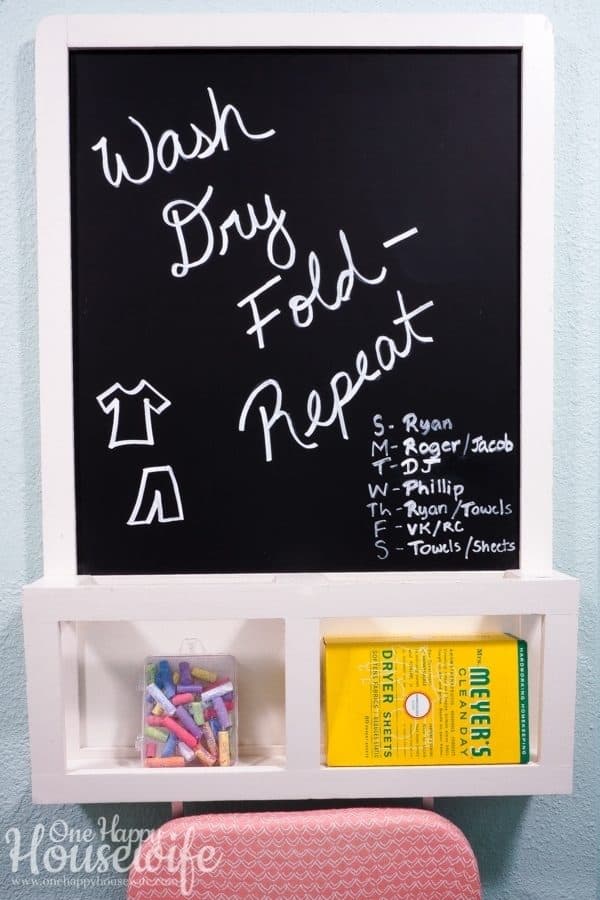 Wash
Dry
Fold -
Repeat
S - Ryan
M - Roger/Jacob
T - DJ
W - Phillip
Th - Ryan/Towels
F - VK/RC
S - Towels/Sheets
Mrs.
MEYER'S
CLEAN DAY
HARDWORKING HOMEKEEPING
DRYER SHEETS
SOFTENS FABRICS • REDUCES STATIC
One Happy
Housewife
www.onehappyhousewife.com